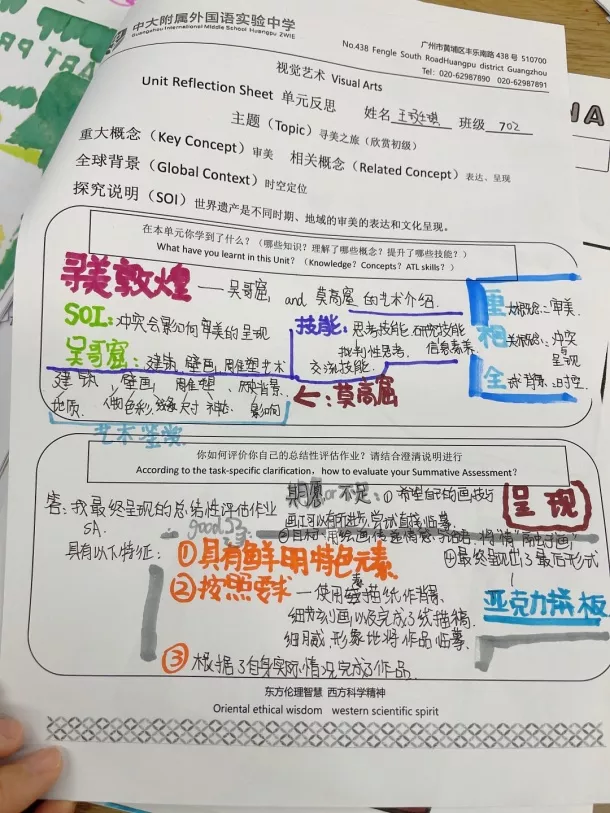 中大附属外国语实验中学
Guangzhou International Middle School Huangpu ZWIE
广州市黄埔区丰乐南路 438 号 510700
No.438 Fengle South RoadHuangpu district Guangzhou
Tel: 020-62987890 020-62987891
视觉艺术 Visual Arts
Unit Reflection Sheet 单元反思 姓名 班级 702
主题（Topic）寻美之旅（欣赏初级）
重大概念（Key Concept）审美 相关概念（Related Concept）表达、呈现
全球背景（Global Context）时空定位
探究说明（SOI）世界遗产是不同时期、地域的审美的表达和文化呈现。
在本单元你学到了什么？（哪些知识？理解了哪些概念？提升了哪些技能？）
What have you learnt in this Unit? （Knowledge? Concepts? ATL skills?）
寻美敦煌 —— 吴哥窟 and 莫高窟 的艺术介绍.
重大概念: 审美
SOI: 冲突会影响审美的呈现
技能: 思考技能 研究技能
批判性思考. 信息素养
交流技能
相关概念: 冲突
呈现
吴哥窟: 建筑 壁画 雕塑艺术
全球背景: 时空
建筑, 壁画, 雕塑, 历史背景.
←: 莫高窟
地质. 色彩 尺寸 影响
艺术鉴赏
你如何评价你自己的总结性评估作业？请结合澄清说明进行
According to the task-specific clarification，how to evaluate your Summative Assessment?
答: 我最终呈现的总结性评估作业
SA.
good
具有以下特征:
or 不足: ① 希望自己的画技
呈现
④最终呈现出了最后形式
①具有鲜明特色元素
②按照要求 —使用素描纸作背景.
以及完成了线描稿.
形象地将作品临摹.
亚克力 板
③ 根据了自身实际情况完成了作品.
东方伦理智慧 西方科学精神
Oriental ethical wisdom western scientific spirit